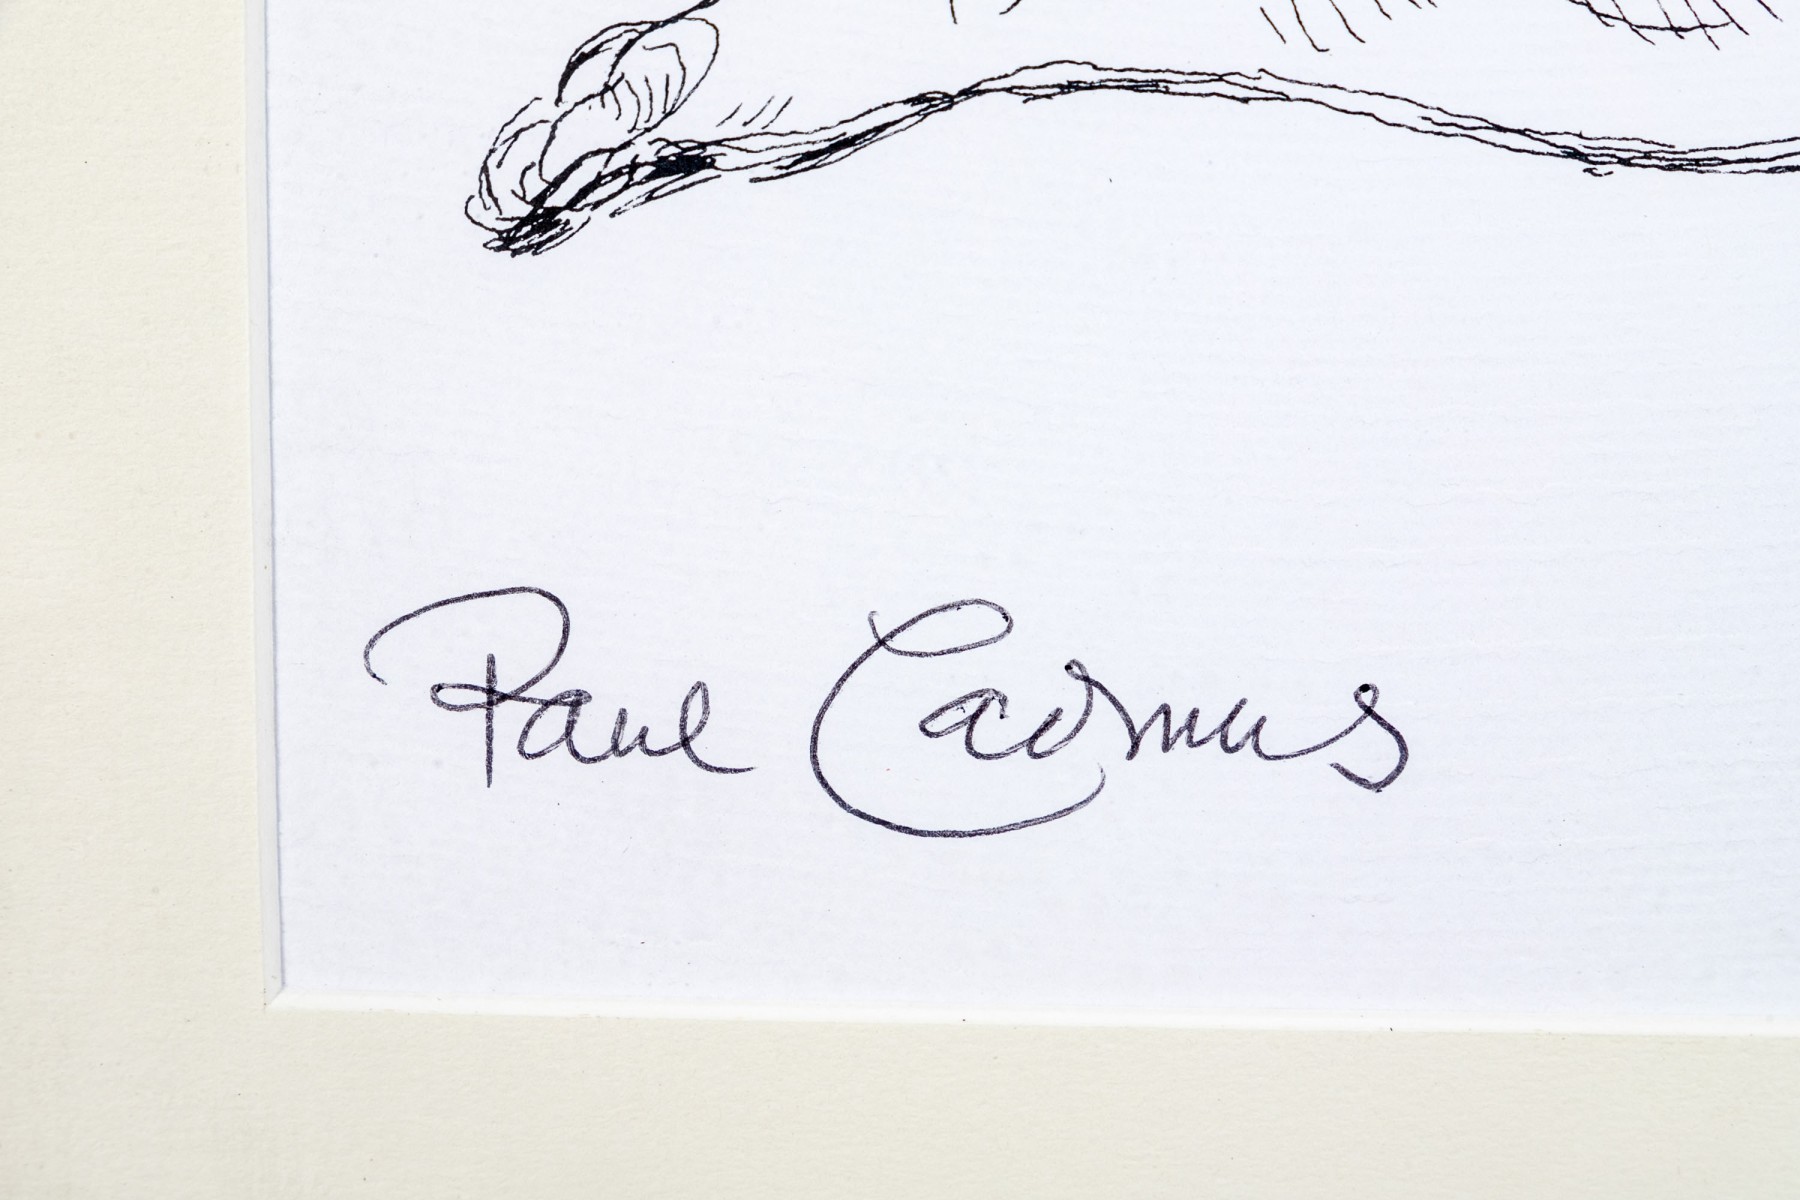 Paul Cadmus